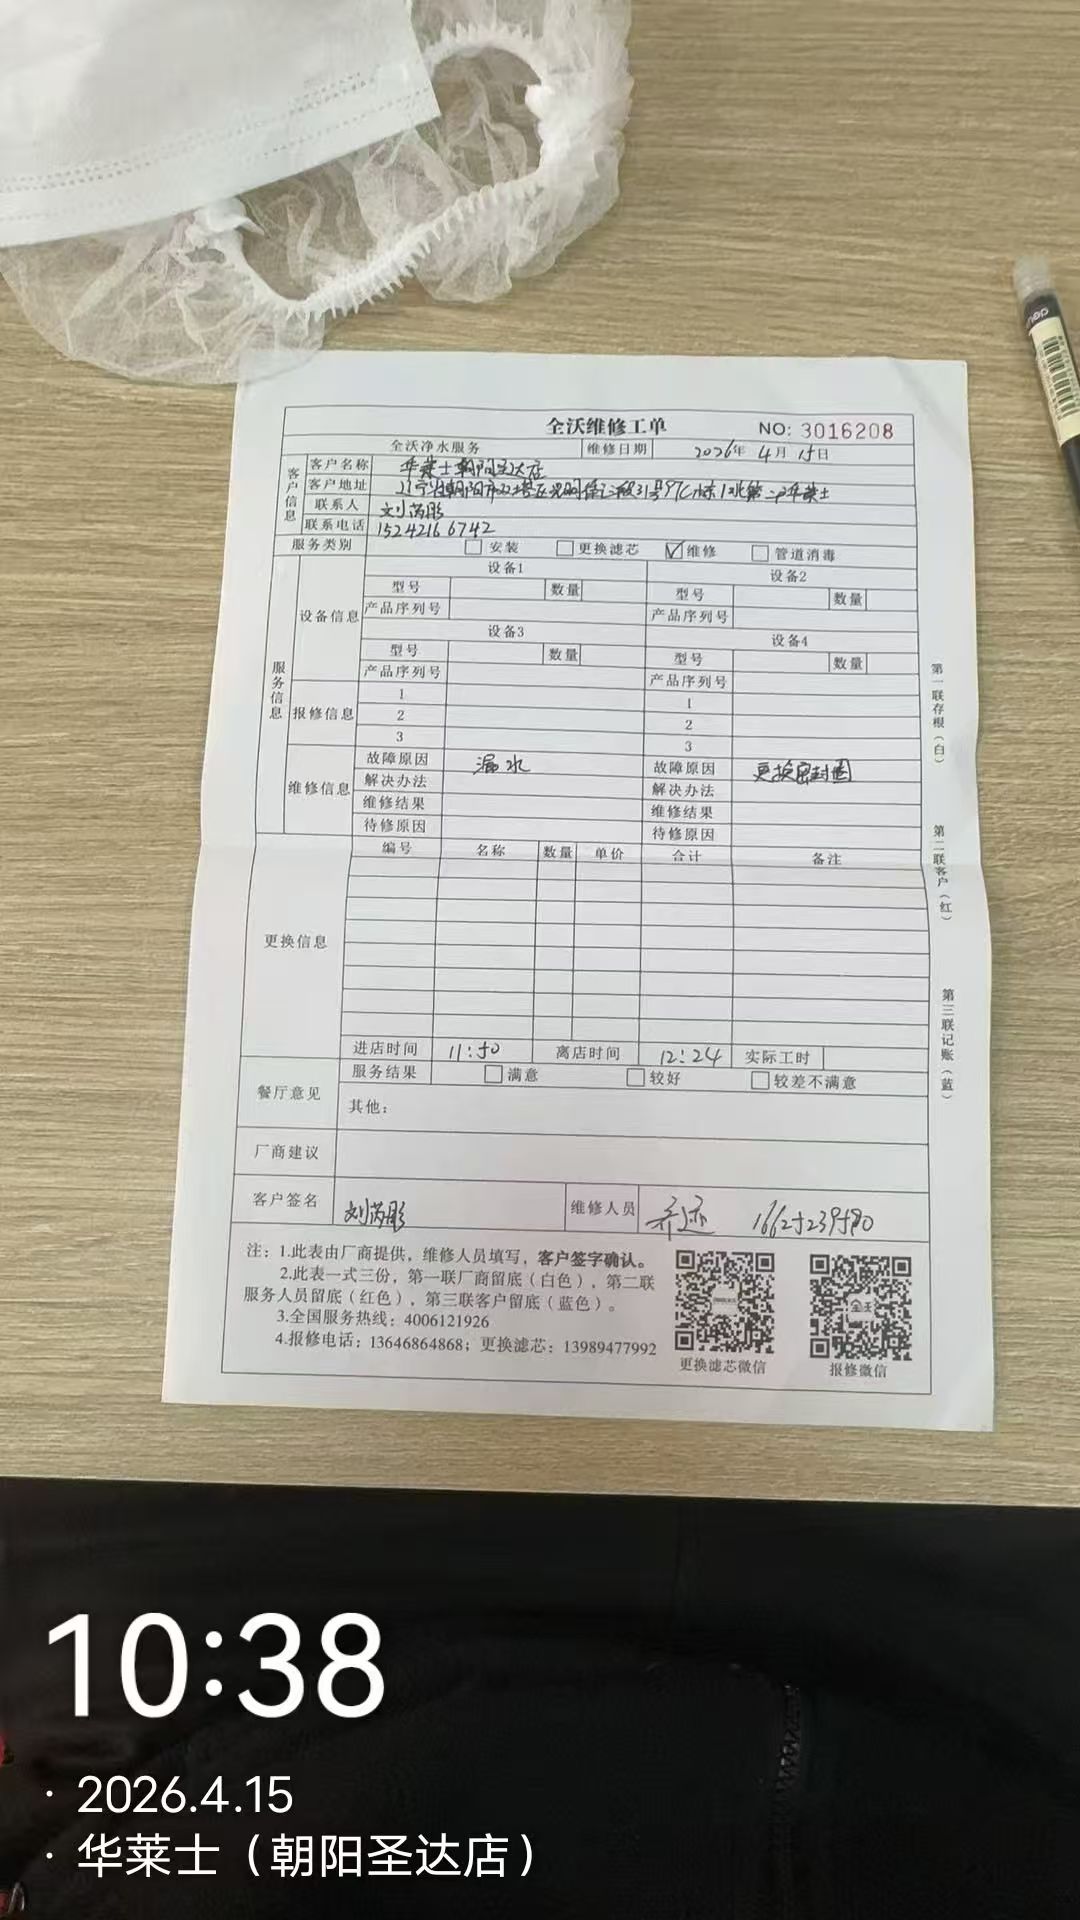 全沃维修工单 NO: 3016208
全沃净水服务 维修日期 2026年 4月 15日
客户信息
客户名称 华莱士朝阳圣达店
客户地址 辽宁省朝阳市双塔区
联系人 刘芮彤
联系电话 15242166742
服务类别 安装 更换滤芯 ☑维修 管道消毒
服务信息
设备信息
设备1 设备2
型号 数量 型号 数量
产品序列号 产品序列号
设备3 设备4
型号 数量 型号 数量
产品序列号 产品序列号
报修信息
1 1
2 2
3 3
维修信息
故障原因 漏水 故障原因 更换密封圈
解决办法 解决办法
维修结果 维修结果
待修原因 待修原因
更换信息
编号 名称 数量 单价 合计 备注
进店时间 11:50 离店时间 12:24 实际工时
餐厅意见
服务结果 满意 较好 较差不满意
其他：
厂商建议
客户签名 刘芮彤 维修人员 16625239580
注：1.此表由厂商提供，维修人员填写，客户签字确认。
2.此表一式三份，第一联厂商留底（白色），第二联
服务人员留底（红色），第三联客户留底（蓝色）。
3.全国服务热线：4006121926
4.报修电话：13646864868；更换滤芯：13989477992
更换滤芯微信 报修微信
第一联存根（白）
第二联客户（红）
第三联记账（蓝）
10:38
· 2026.4.15
· 华莱士（朝阳圣达店）